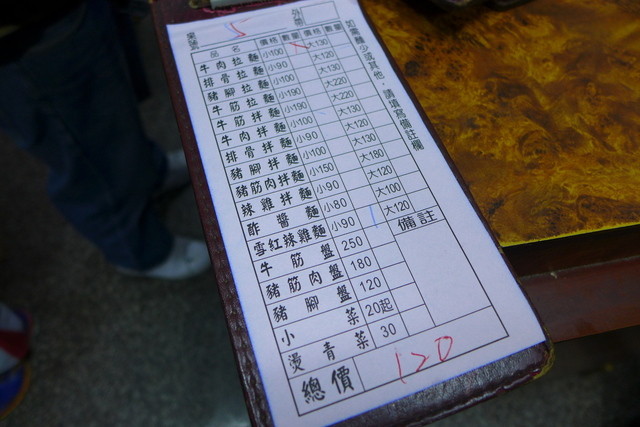 桌號 5 外帶
品名 價格 數量 價格 數量
牛肉拉麵 小100 大130
排骨拉麵 小90 大120
豬腳拉麵 小100 大130
牛筋拉麵 小190 大220
牛筋拌麵 小190 大220
牛肉拌麵 小100 大130
排骨拌麵 小90 大120
豬腳拌麵 小100 大130
豬筋肉拌麵 小150 大180
辣雞拌麵 小90 大120
酢醬麵 小80 大100
雪紅辣雞麵 小90 1 大120
牛筋盤 250 備註
豬筋肉盤 180
豬腳盤 120
小菜 20起
燙青菜 30
總價 120
如需麵少或其他，請填寫備註欄